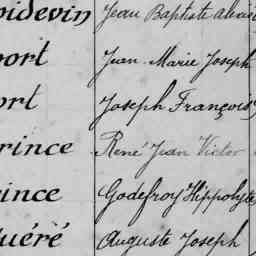 oidevin Jean Baptiste Alexis
port Jean Marie Joseph
ort Joseph François
rince René Jean Victor
ince Godefroy Hippolyte
uéré Auguste Joseph